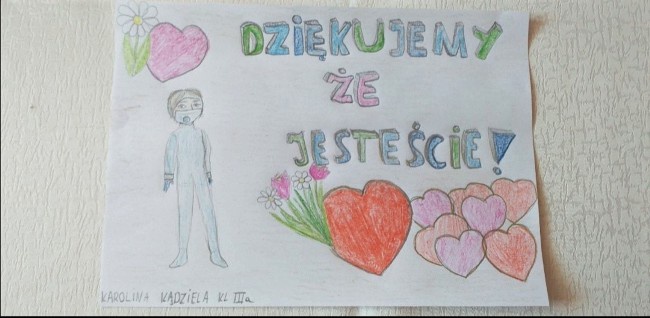 DZIĘKUJEMY
ŻE
JESTEŚCIE!
KAROLINA KĄDZIELA KL IIIa